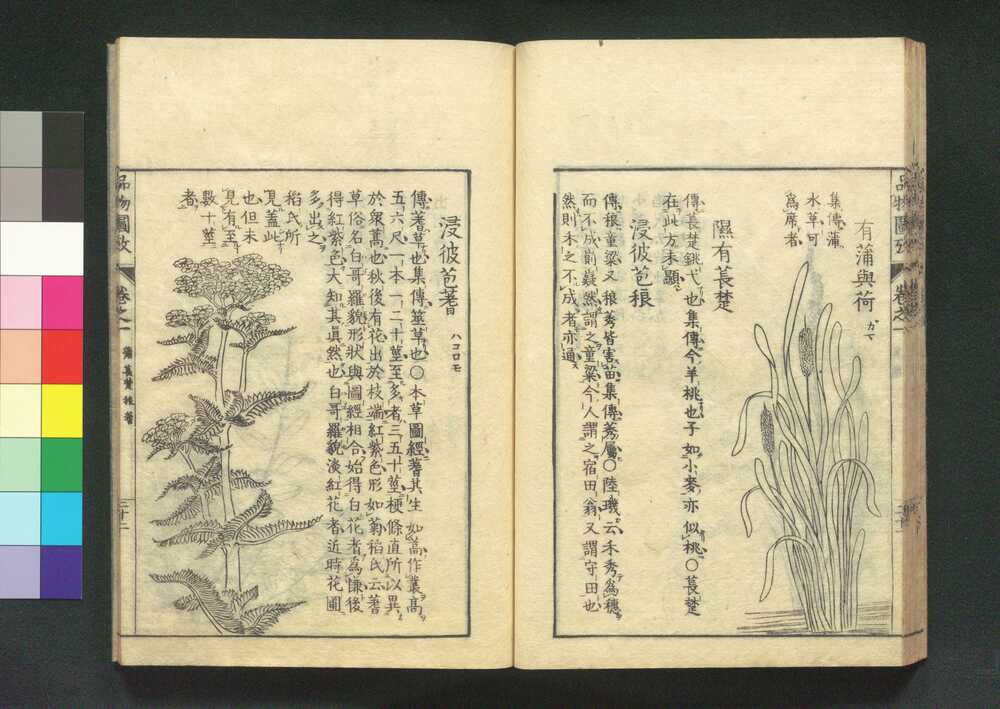 有蒲與荷
ガマ
集傳蒲
水草可
為席者
隰有萇楚
傳萇楚銚弋也集傳今羊桃也子如小麥亦似桃〇萇楚
在此方未顯
浸彼苞稂
傳稂童粱又稂莠皆害苗集傳莠屬〇陸璣云禾秀為穗
而不成則嶷然謂之童粱今人謂之宿田翁又謂守田也
然則禾之不成者亦通
品物圖攷
卷之一
浸彼苞蓍
ハコロモ
傳蓍草也集傳筮草也〇本草圖經蓍其生如蒿作叢高
五六尺一本一二十莖至多者三五十莖梗條直所以異
於衆蒿也秋後有花出於枝端紅紫色形如菊稻氏云蓍
草俗名白哥羅貌形狀與圖經相合始得白花者為慊後
得紅紫色大知其眞然也白哥羅貌淡紅花者近時花圃
多出之
稻氏所
見蓋此
也但未
見有至
數十莖
者
品物圖攷
卷之一
蒲 萇楚 稂 蓍
二十二